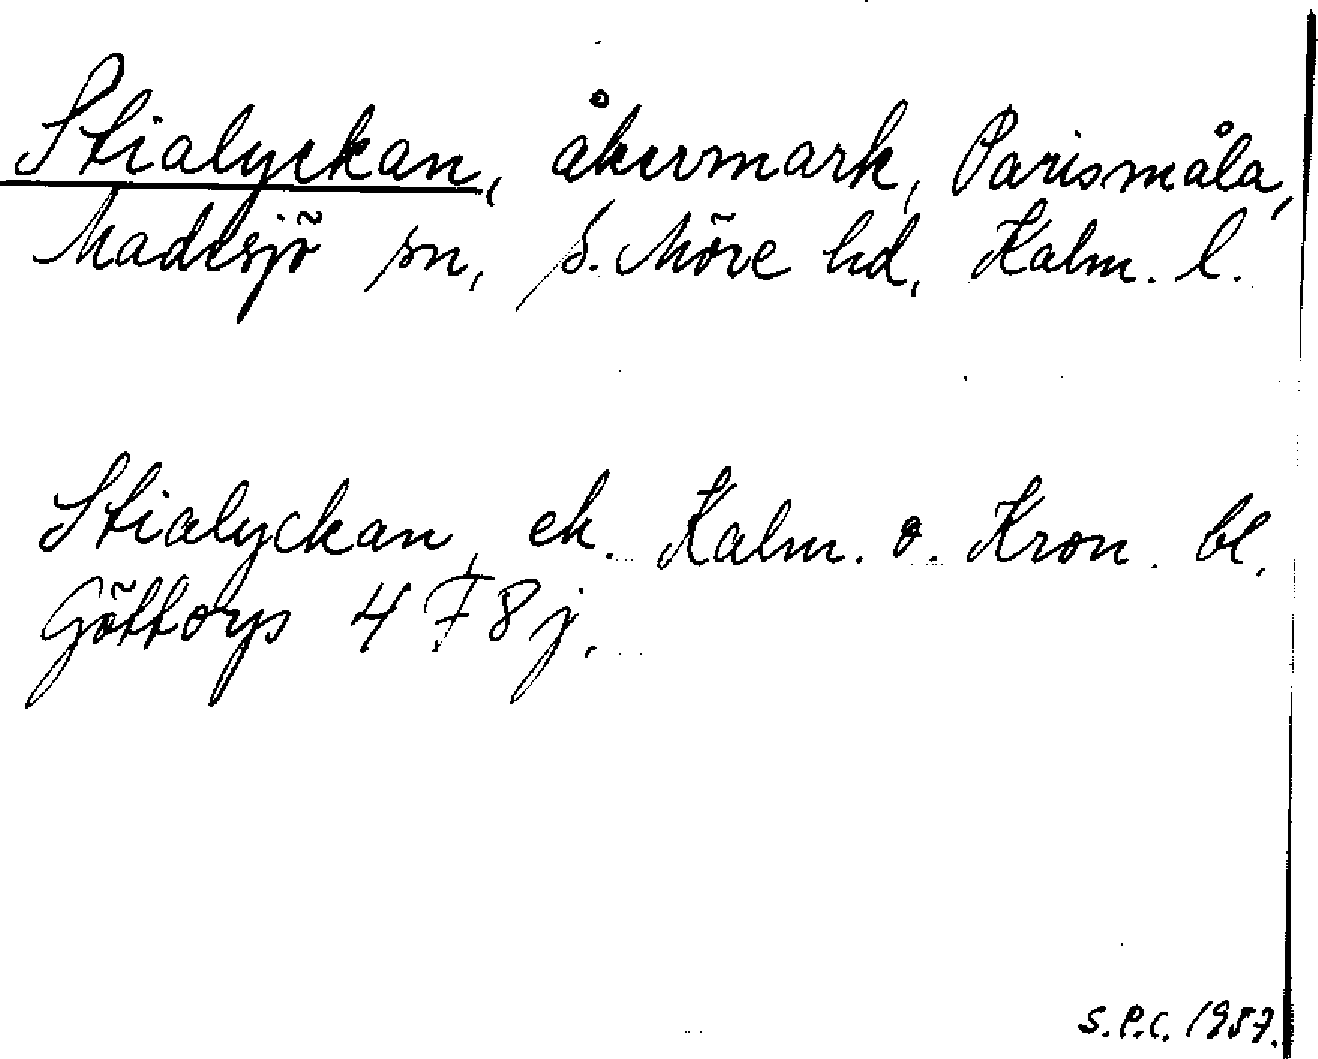 Stialyckan, åkermark, Parismåla,
Madesjö sn, S. Möre hd, Kalm. l.
Stialyckan, ek. Kalm. o. Kron. bl.
Göttorys 4 F 8 j.
S.P.C. 1987.